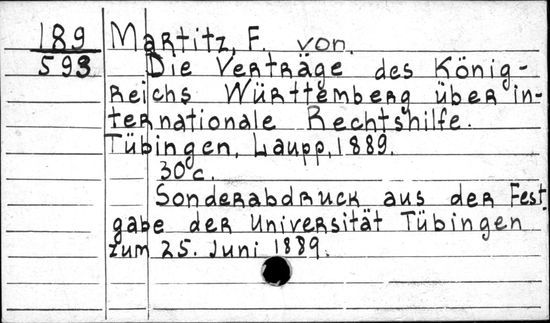 189 Martitz, F. von.
593 Die Verträge des König-
reichs Württemberg über in-
ternationale Rechtshilfe.
Tübingen, Laupp, 1889.
30 c.
Sonderabdruck aus der Fest-
gabe der Universität Tübingen
zum 25. Juni 1889.